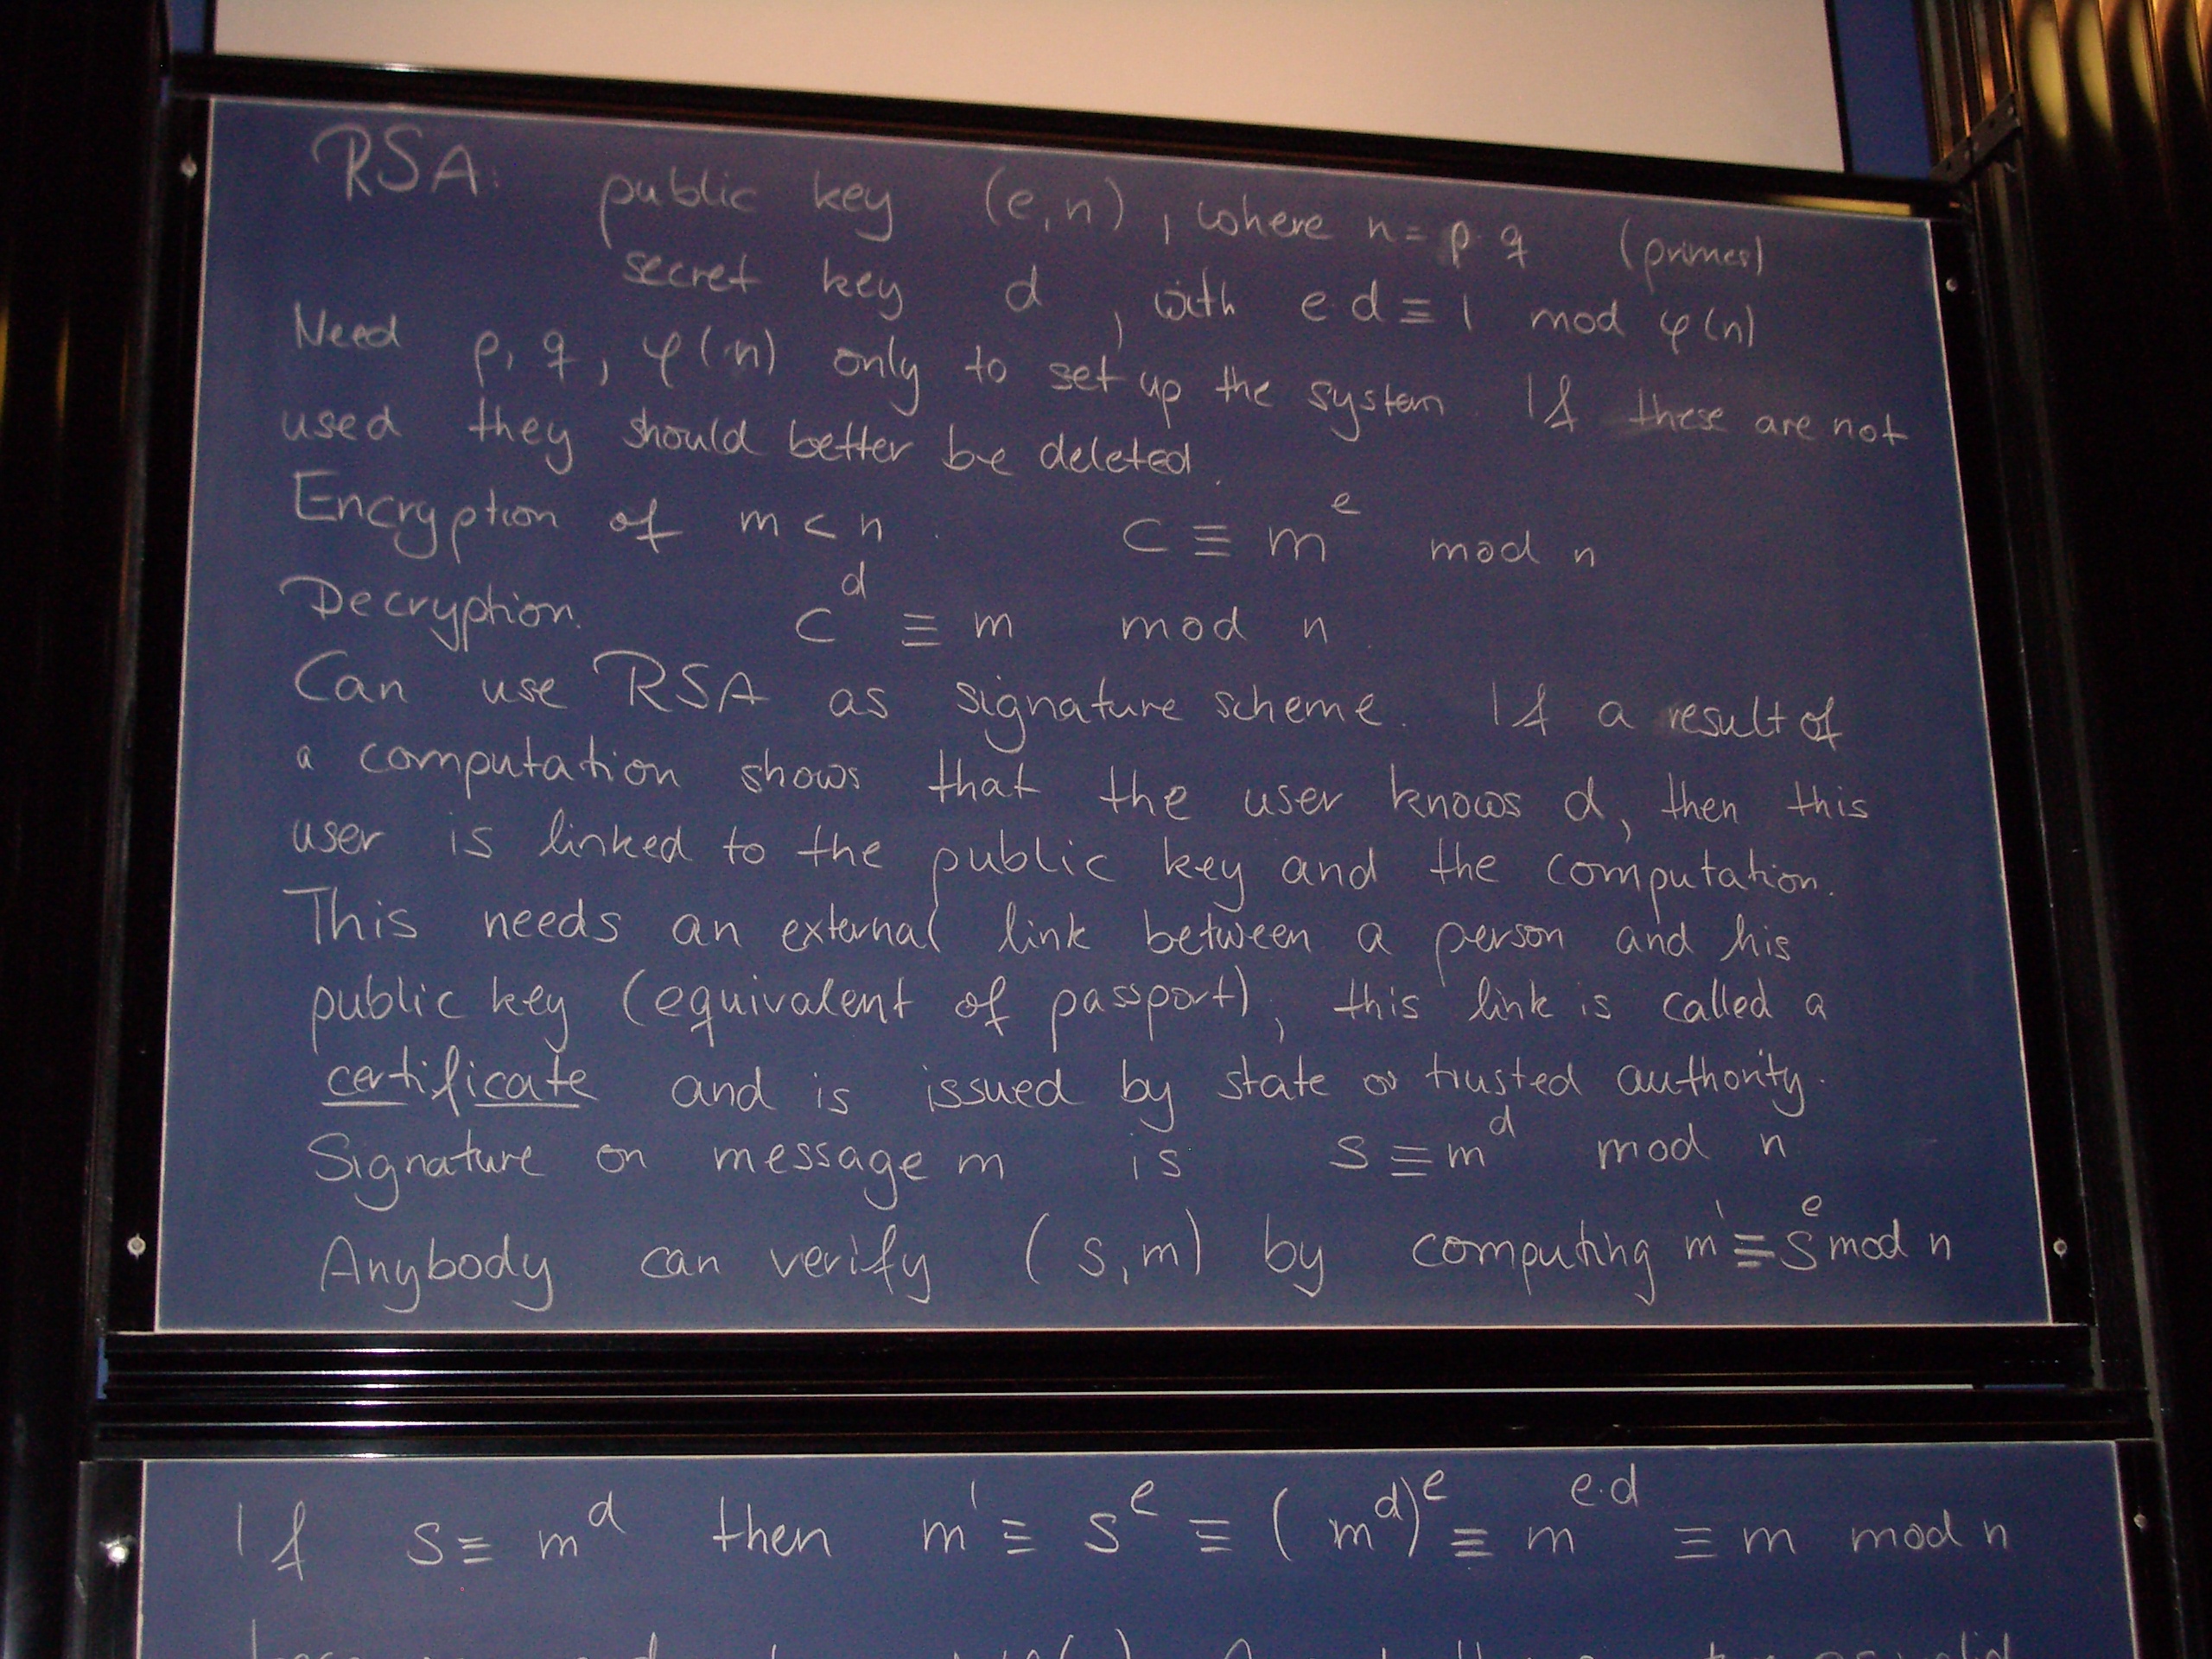 RSA: public key (e,n), where n = p·q (primes)
secret key d, with e·d ≡ 1 mod φ(n)
Need p, q, φ(n) only to set up the system. If these are not
used they should better be deleted.
Encryption of m < n. c ≡ m^e mod n
Decryption. c^d ≡ m mod n
Can use RSA as signature scheme. If a result of
a computation shows that the user knows d, then this
user is linked to the public key and the computation.
This needs an external link between a person and his
public key (equivalent of passport), this link is called a
certificate and is issued by state or trusted authority.
Signature on message m is s ≡ m^d mod n
Anybody can verify (s,m) by computing m' ≡ s^e mod n
If s ≡ m^d then m' ≡ s^e ≡ (m^d)^e ≡ m^e·d ≡ m mod n